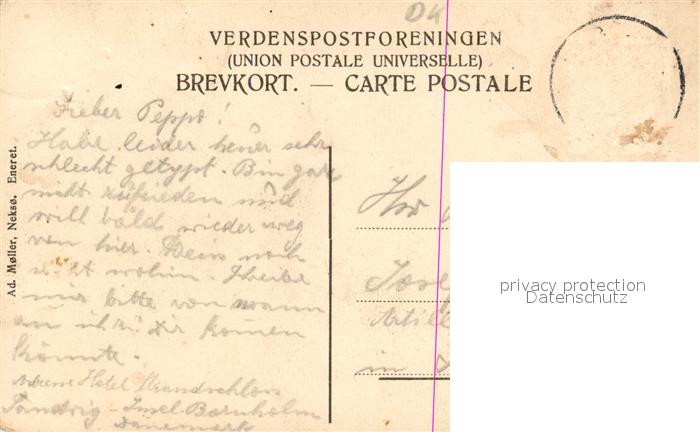 DK
VERDENSPOSTFORENINGEN
(UNION POSTALE UNIVERSELLE)
BREVKORT. — CARTE POSTALE
Lieber Peppo!
Habe leider heuer sehr
schlecht getypt. Bin gar
nicht zufrieden und
will bald wieder weg
von hier. Weiss noch
nicht wohin. Schreibe
mir bitte von wann
an ich zu Dir kommen
könnte.
Adresse Hotel Strandschloss
Sandvig - Insel Bornholm
Dänemark
Ad. Møller, Neksø. Eneret.
Josef
Artill
in
privacy protection
Datenschutz